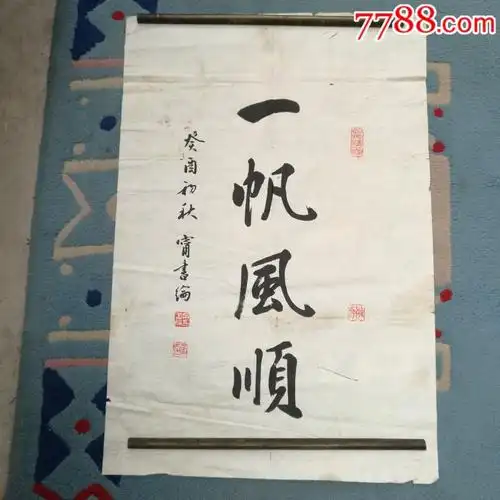 7788.com
一帆風順
癸酉初秋 甯書綸